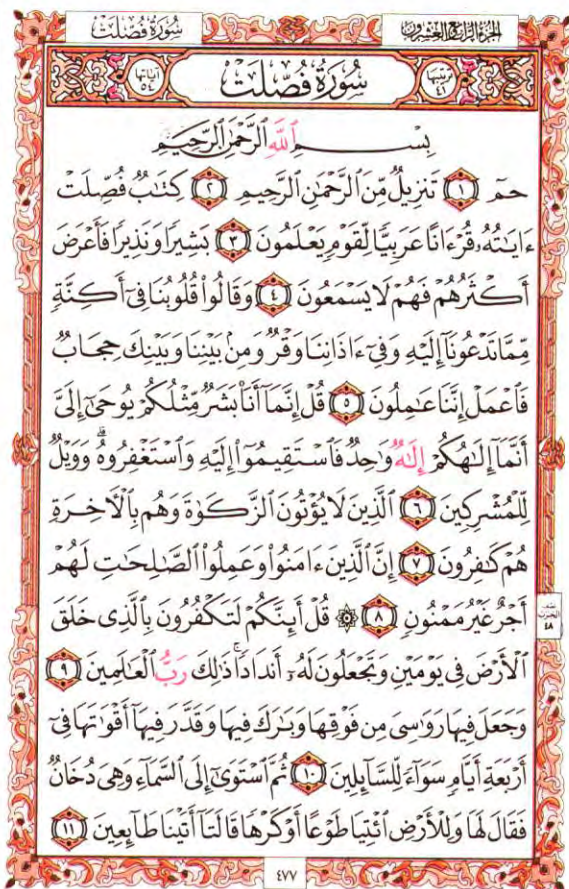 الجزء الرابع والعشرون سُورَةُ فُصِّلَتْ
ترتيبها ٤١ سُورَةُ فُصِّلَتْ آياتها ٥٤
بِسْمِ ٱللَّهِ ٱلرَّحْمَٰنِ ٱلرَّحِيمِ
حمٓ ١ تَنزِيلٌ مِّنَ ٱلرَّحْمَٰنِ ٱلرَّحِيمِ ٢ كِتَٰبٌ فُصِّلَتْ
ءَايَٰتُهُۥ قُرْءَانًا عَرَبِيًّا لِّقَوْمٍ يَعْلَمُونَ ٣ بَشِيرًا وَنَذِيرًا فَأَعْرَضَ
أَكْثَرُهُمْ فَهُمْ لَا يَسْمَعُونَ ٤ وَقَالُوا۟ قُلُوبُنَا فِىٓ أَكِنَّةٍ
مِّمَّا تَدْعُونَآ إِلَيْهِ وَفِىٓ ءَاذَانِنَا وَقْرٌ وَمِنۢ بَيْنِنَا وَبَيْنِكَ حِجَابٌ
فَٱعْمَلْ إِنَّنَا عَٰمِلُونَ ٥ قُلْ إِنَّمَآ أَنَا۠ بَشَرٌ مِّثْلُكُمْ يُوحَىٰٓ إِلَىَّ
أَنَّمَآ إِلَٰهُكُمْ إِلَٰهٌ وَٰحِدٌ فَٱسْتَقِيمُوٓا۟ إِلَيْهِ وَٱسْتَغْفِرُوهُ ۗ وَوَيْلٌ
لِّلْمُشْرِكِينَ ٦ ٱلَّذِينَ لَا يُؤْتُونَ ٱلزَّكَوٰةَ وَهُم بِٱلْءَاخِرَةِ
هُمْ كَٰفِرُونَ ٧ إِنَّ ٱلَّذِينَ ءَامَنُوا۟ وَعَمِلُوا۟ ٱلصَّٰلِحَٰتِ لَهُمْ
أَجْرٌ غَيْرُ مَمْنُونٍ ٨ ۞ قُلْ أَئِنَّكُمْ لَتَكْفُرُونَ بِٱلَّذِى خَلَقَ
ٱلْأَرْضَ فِى يَوْمَيْنِ وَتَجْعَلُونَ لَهُۥٓ أَندَادًا ۚ ذَٰلِكَ رَبُّ ٱلْعَٰلَمِينَ ٩
وَجَعَلَ فِيهَا رَوَٰسِىَ مِن فَوْقِهَا وَبَٰرَكَ فِيهَا وَقَدَّرَ فِيهَآ أَقْوَٰتَهَا فِىٓ
أَرْبَعَةِ أَيَّامٍ سَوَآءً لِّلسَّآئِلِينَ ١٠ ثُمَّ ٱسْتَوَىٰٓ إِلَى ٱلسَّمَآءِ وَهِىَ دُخَانٌ
فَقَالَ لَهَا وَلِلْأَرْضِ ٱئْتِيَا طَوْعًا أَوْ كَرْهًا قَالَتَآ أَتَيْنَا طَآئِعِينَ ١١
الحزب ٤٨
٤٧٧